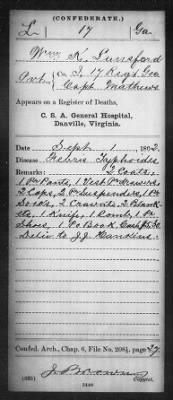 (CONFEDERATE.)
L 17 Ga
Wm K. Lunsford
Pvt Co. I, 17 Regt Geo
Capt Mathews
Appears on a Register of Deaths,
C. S. A. General Hospital,
Danville, Virginia.
Date Sept 1, 1862.
Disease Febris Typhoides
Remarks: 2 Coats,
1 Pr Pants, 1 Vest, Pr Drawers
2 Caps, 2 Pr Suspenders, 1 Pr
Socks, 2 Cravats, 2 Blank-
ets, 1 Knife, 1 Comb, 1 Pr
Shoes, 1 Po Book, Cash
Deliv to J. J.
Confed. Arch., Chap. 6, File No. 208½, page 27
J. Brown
(635) Copyist.